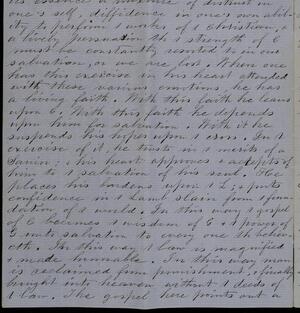 its essence a mixture of distrust in
one's self, diffidence in one's own abil-
ity to perform duties of a christian, &
a lively persuasion tht t strength of G
must be constantly resorted to in our
salvation, or we are lost. When one
has this exercise in his heart attended
with these various emotions, he has
a living faith. With this faith he leans
upon G. With this faith he depends
upon Him for salvation. With it he
suspends his hopes upon t cross. In t
exercise of it, he trusts in t merits of a
Savior; his heart approves & accepts of
him to t salvation of his soul. He
places his burdens upon t L; & puts
confidence in t Lamb slain from t foun-
dation of t world. In this way t gospel
of C becomes t wisdom of G & t power of
G unto salvation to every one tht believ-
eth. In this way t law is magnified
& made honorable. In this way man
is reclaimed from punishment, & finally
brought into heaven without t deeds of
t law. The gospel here points out a